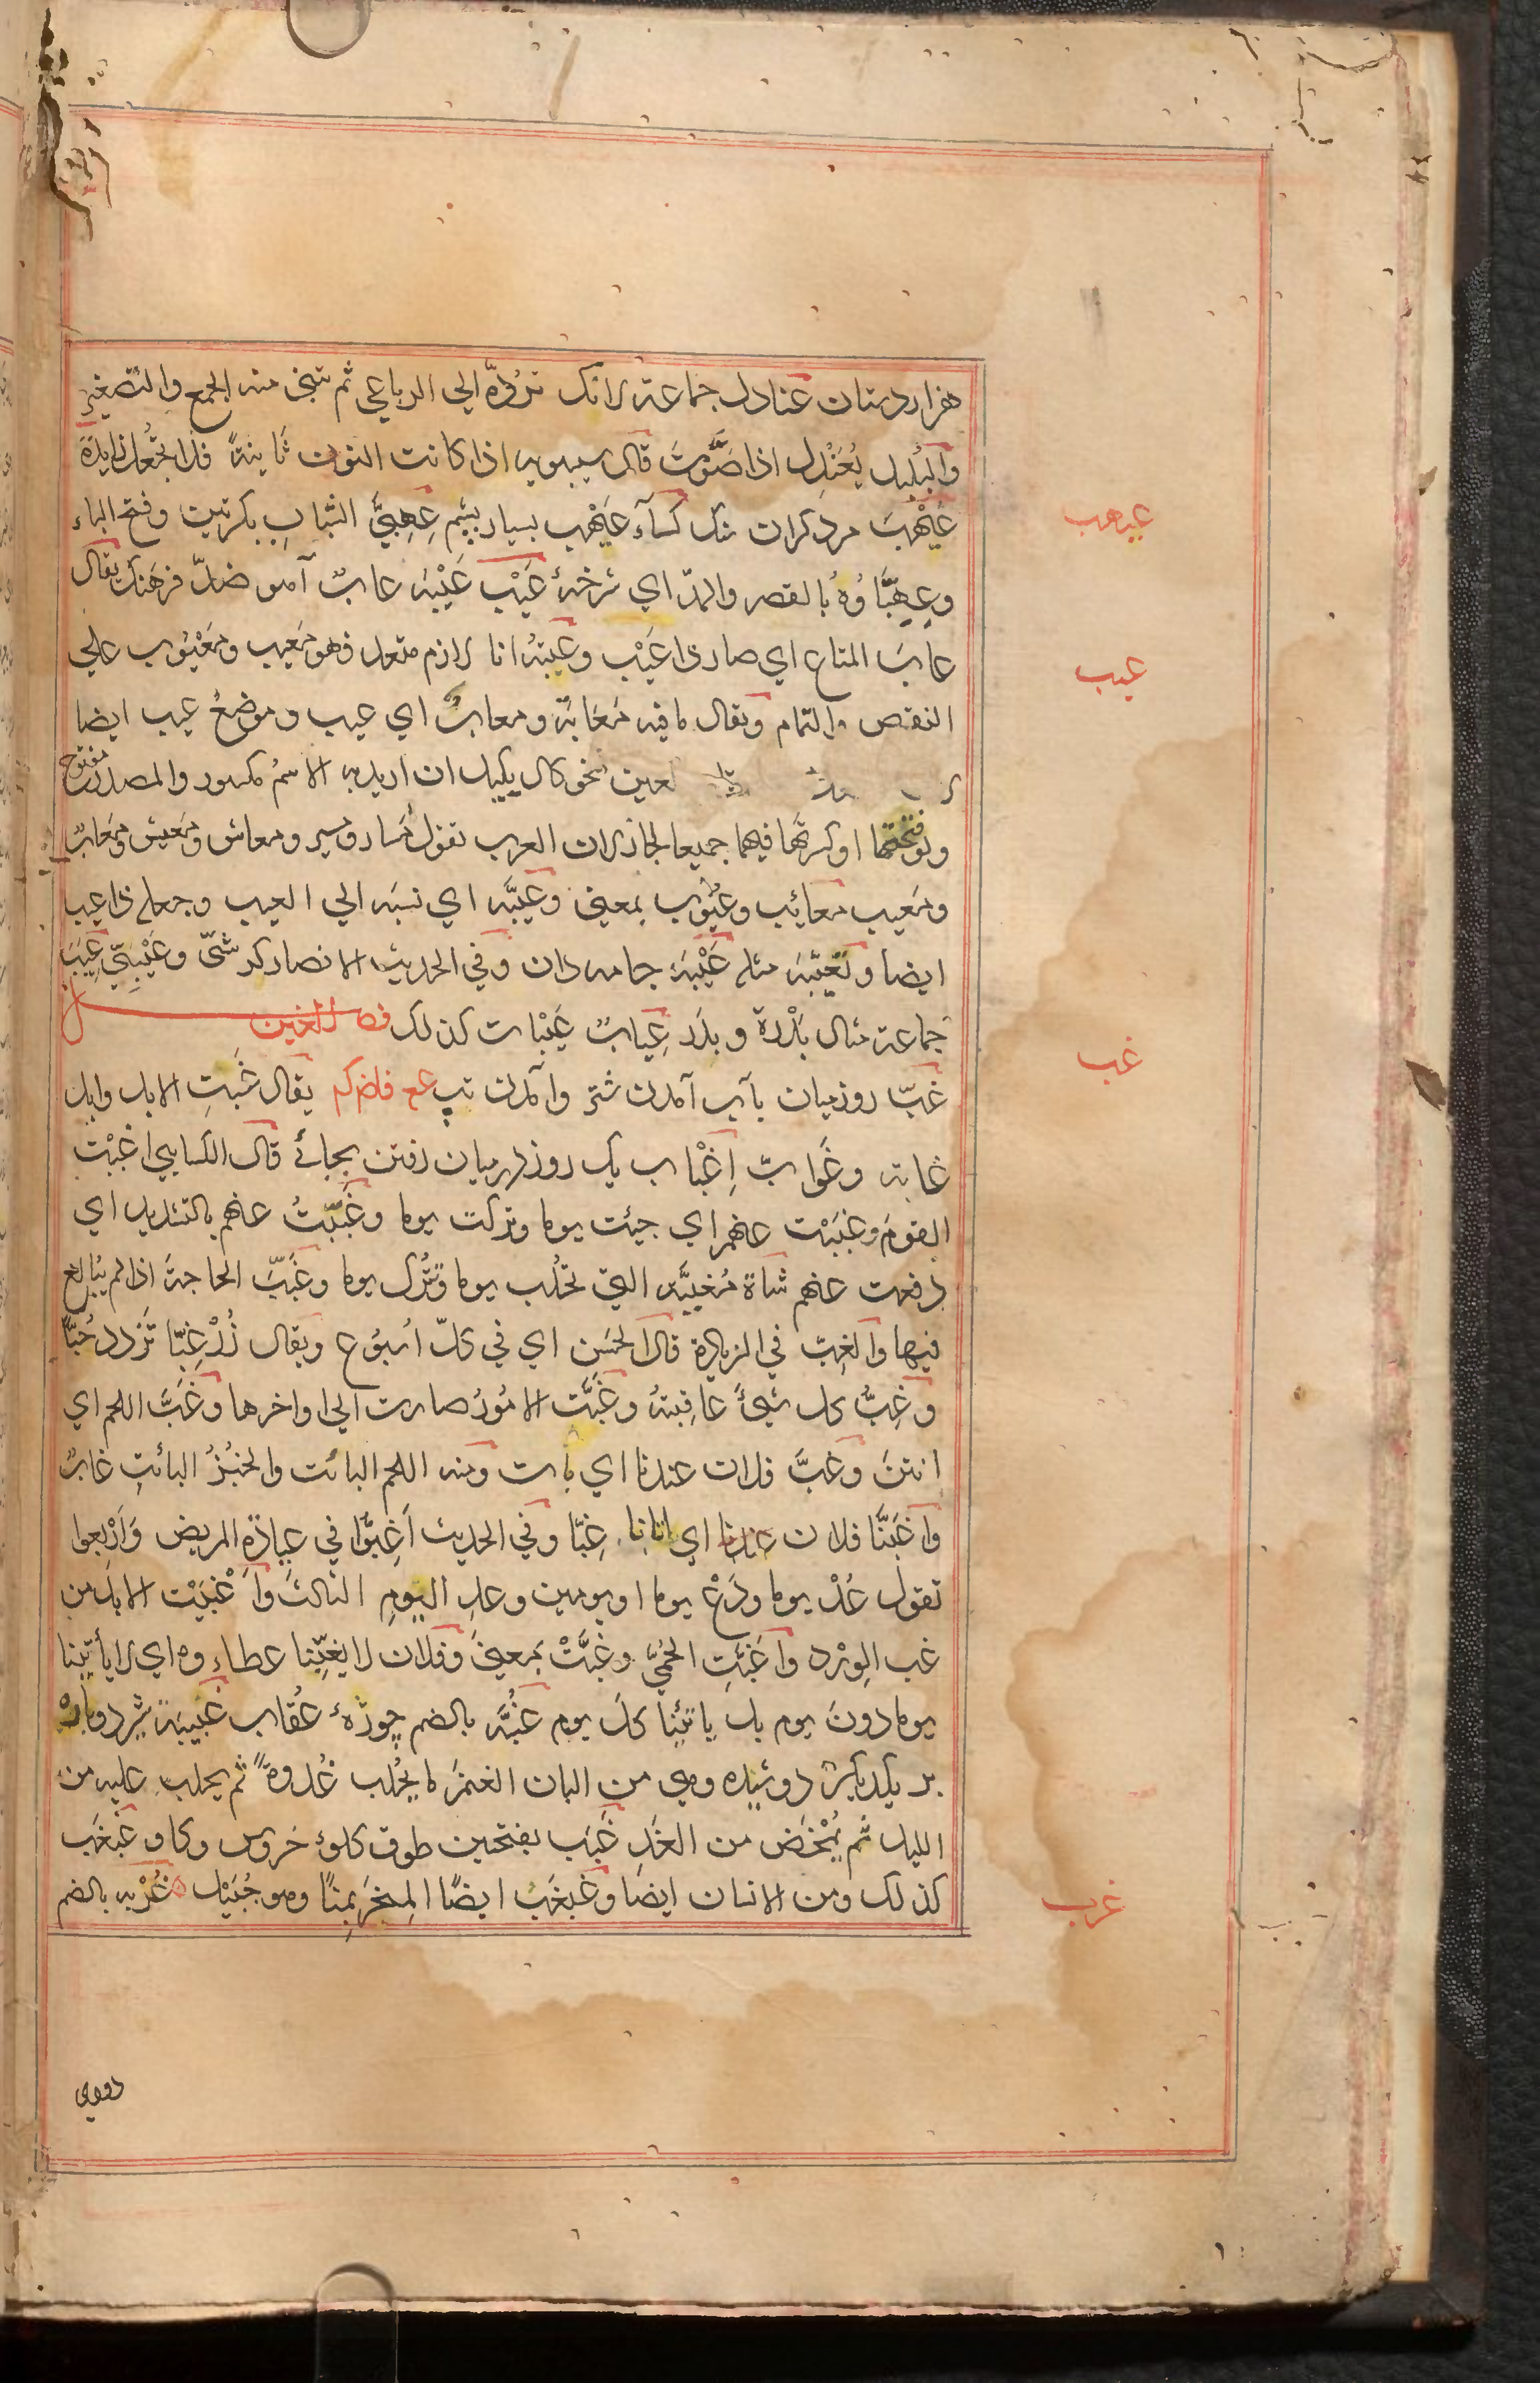 هزاردستان عنادل جماعة لانك تردّه الي الرباعي ثم تبني منه الجمع والتصغير
والبُلبل يُعَنْدِل اذا صَوَّتَ قال سيبويه اذا كانت النون ثانيةً فلا تجعل زايدة
عَيْهَبَ مرد كران سنك كسآء عَيْهب بسيار پشم عِهِبَّي الشباب بكرتين وفتح الباء
وعِهِبَّاؤه بالقصر والمدّ اي شرخهٔ عَيْب عَيْبَه عابٌ آهو ضدّ فرهنك يقال
عابَ المتاع اي صار ذا عَيْب وعِبْتُه انا لازم متعد فهو مَعيب ومَعْيُوب علي
النقص والتمام ويقال ما فيه مَعَابَة ومعابٌ اي عيب وموضعُ عيب ايضا
لعين نحو كال يكيل ان اريد به الاسم مكسور والمصدر مفتوح
ولو فتحتهما او كسرتهما فيهما جميعا لجاز لان العرب تقول مَسار ومسير ومعاش ومَعيش ومَعابٌ
ومَعيب معائب وعُيُوب بمعني وعَيَّبَه اي نسبَه الي العيب وجعله ذا عيب
ايضا وتَعَيَّبَه مثله عَيْبَة جامه دان وفي الحديث الانصار كرشي وعَيْبَتي عِيَب
جماعة مثال بَدْرة وبدَر عِيابٌ عَيْبات كذلك فصل الغين
غبّ روز ميان بآب آمدن شتر وآمدن تب عع فلضركم يقال غَبَتِ الابل وابل
غابة وغَوابّ اِغْباب يك روز درميان رفتن بجائے قال الكسايي اغبَبْت
القومَ وغَبَبْت عنهم اي جيئت يوما وتركت يوما وغَبَّبْتُ عنهم بالتشديد اي
دفعت عنهم شاة مُغِبَّه التي تحلب يوما وتُترك يوما وغَبَّبَ الحاجة اذا لم يُبالغ
فيها والغِبّ في الزيارة قال الحسَن اي في كلّ اُسبُوع ويقال زُرْ غِبًّا تَزدد حُبًّا
وغِبُّ كل شيئ عاقبتهُ وغَبَّت الامُورُ صارت الي اواخرها وغَبَّ اللحم اي
انتنَ وغَبَّ فلان عندنا اي بات ومنه اللحم البائت والخبُزُ البائتِ غابٌ
واغَبَّنا فلان عندنا اي اتانا غِبًّا وفي الحديث اَغِبُّوا في عيادَةِ المريض وَاَرْبِعوا
تقول عُدْ يوما ودَعْ يوما او يومين وعدِ اليَومِ الثالث واَغْبَبْت الابل من
غب الوِرْد واَغَبَّتِ الحُمّيَ وغَبَّتْ بمعني وفلان لا يغبّنا عطاءوه اي لا يأتينا
يوما دونَ يوم بل ياتيْنا كلَ يوم غُبَّه بالضم چوزۀ عُقاب غَبيبَة شير دوباره
بر يكديكر دوشيده وهي من البان الغنمَ ما يُحلب غُدوةً ثم يحلب عليه من
الليل ثم يُمْخَض من الغَدِ غَبَب بفتحين طوق كلوۀ خروس وكاو غَبْغَب
كذلك ومن الانسان ايضا وغَبْغَبْ ايضًا المنحَر بمِنًا وهو جُبَيْل غُرْبه بالضم
عيهب
عيب
غب
غرب
دوري